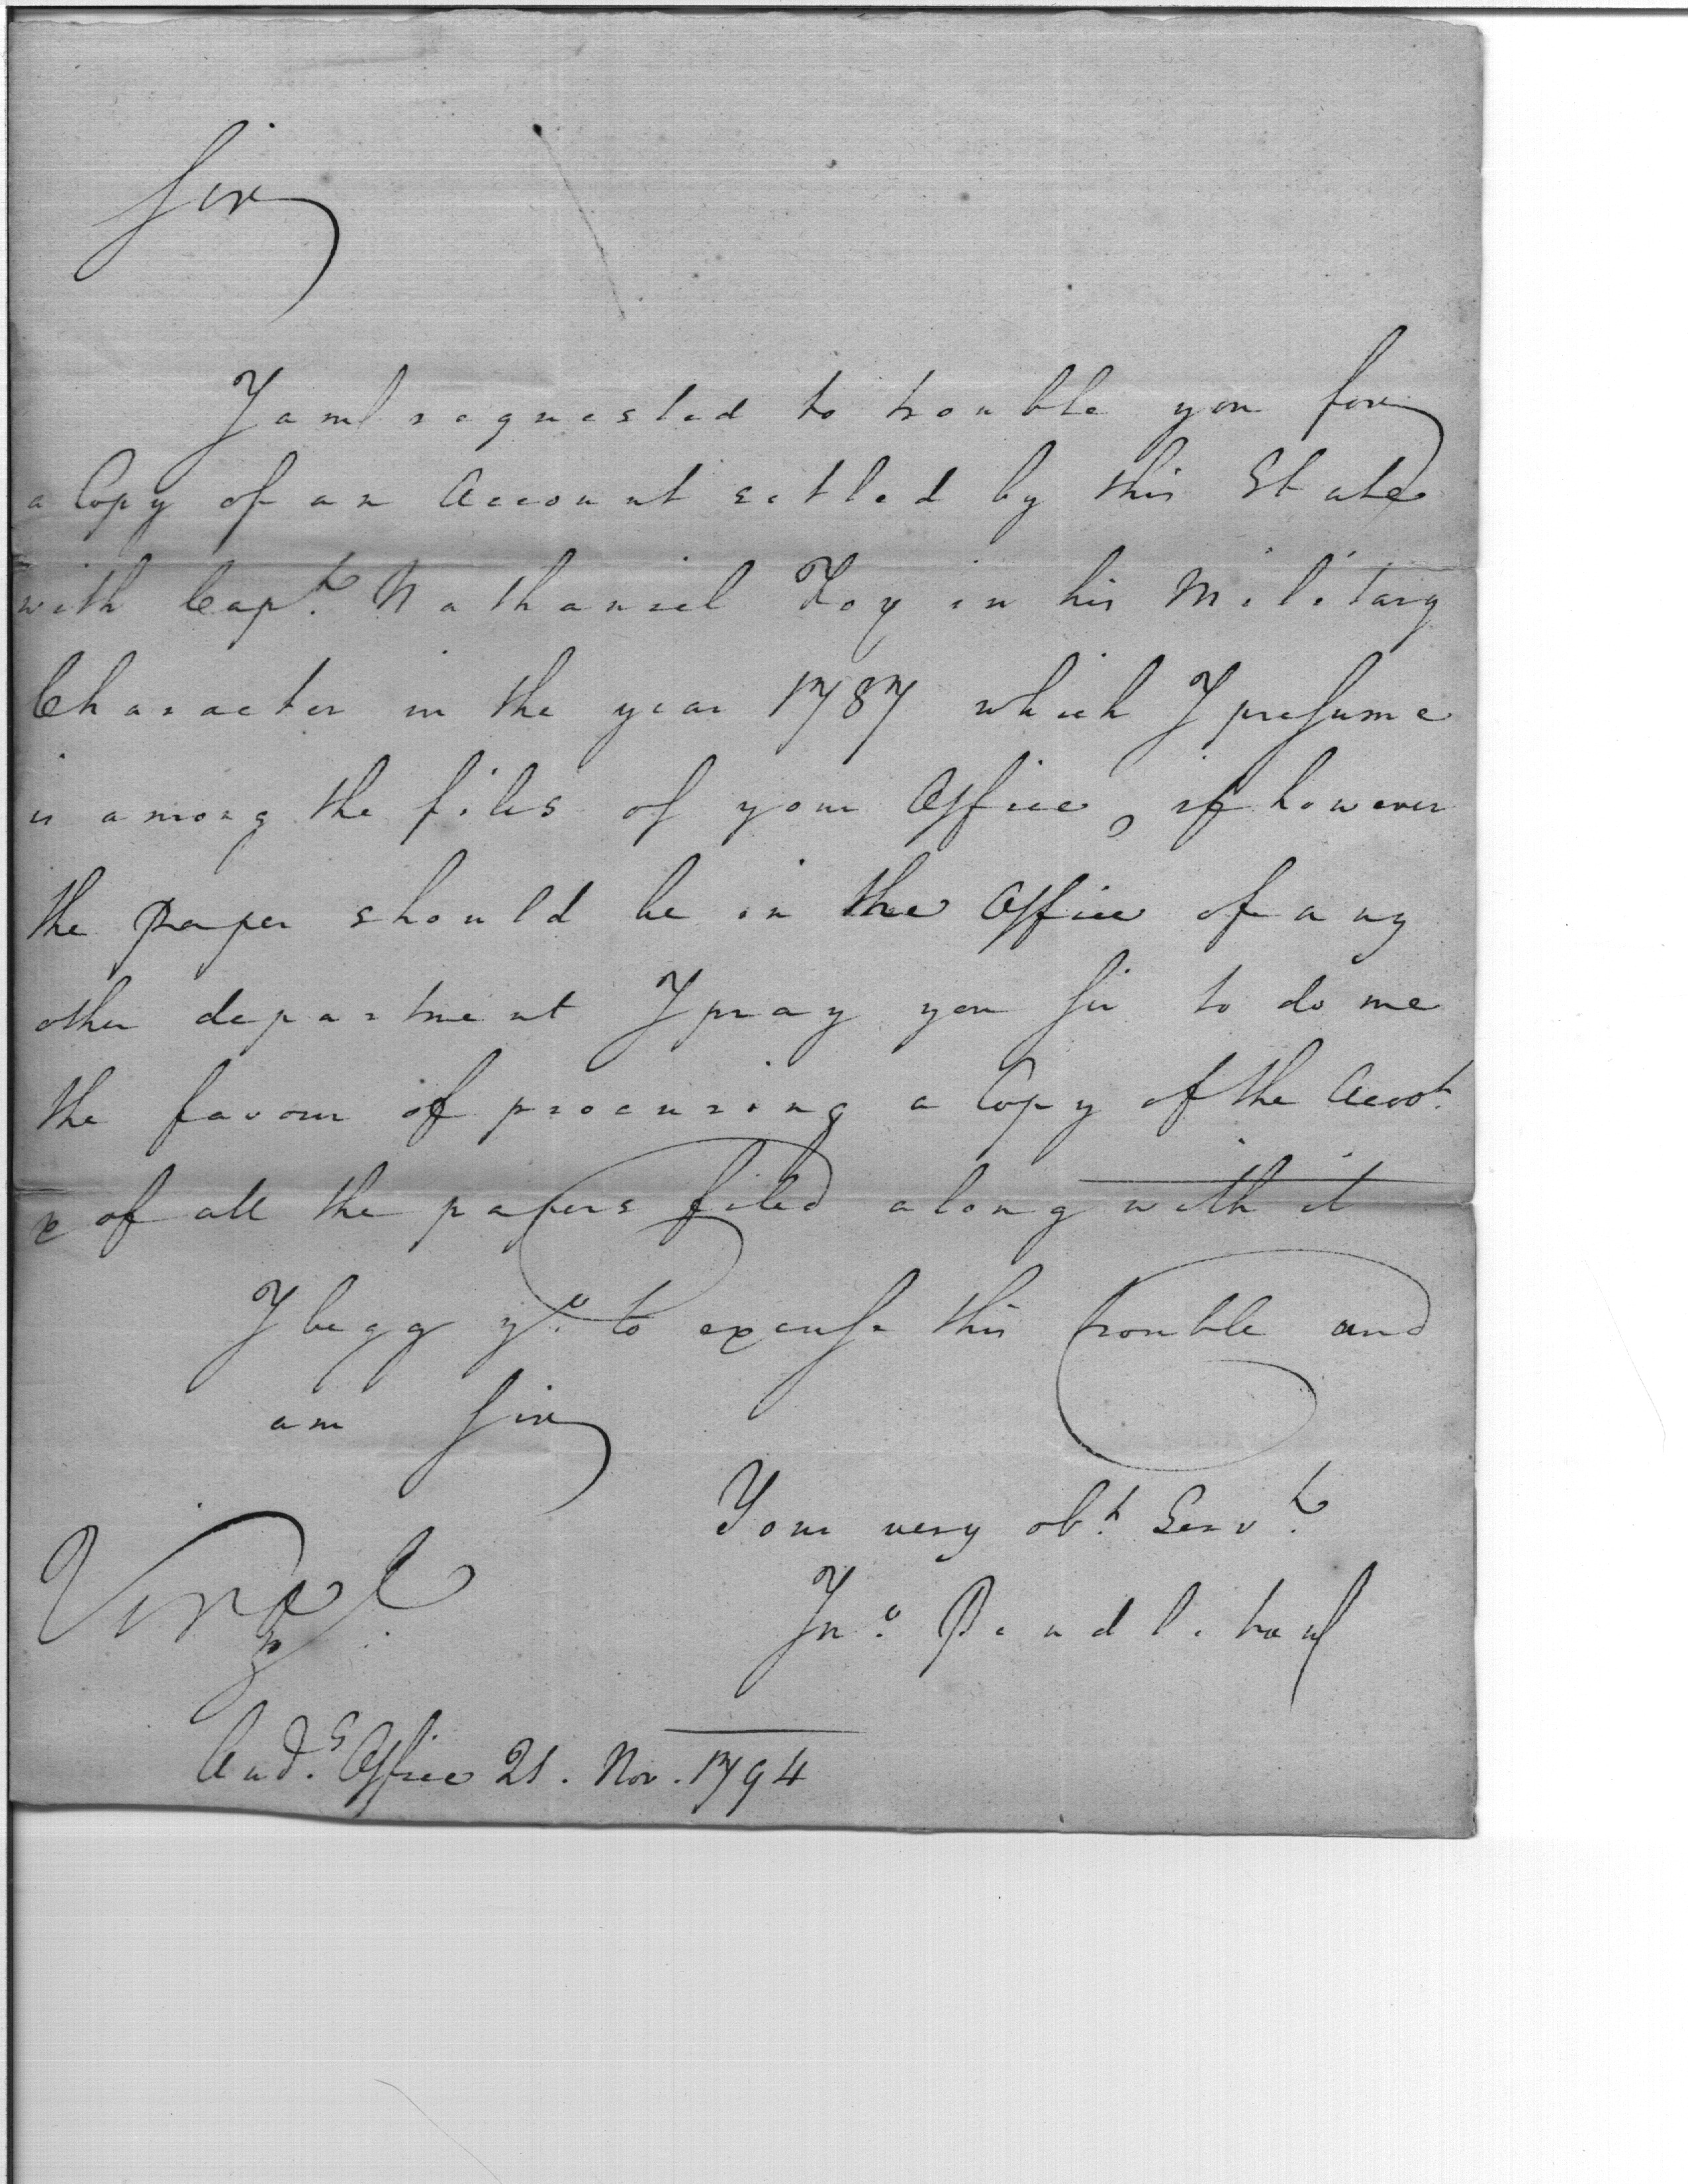 Sir
I am requested to trouble you for
a Copy of an Account setled by this State
with Capt. Nathaniel Fox in his Military
Character in the year 1787 which I presume
is among the files of your Office, if however
the paper should be in the Office of any
other department I pray you Sir to do me
the favour of procuring a Copy of the Accot.
& of all the papers filed along with it
I begg yo. to excuse this trouble and
am Sir
Your very obt. Servt.
Jno. Pendleton
Aud.s Office 21. Nov. 1794